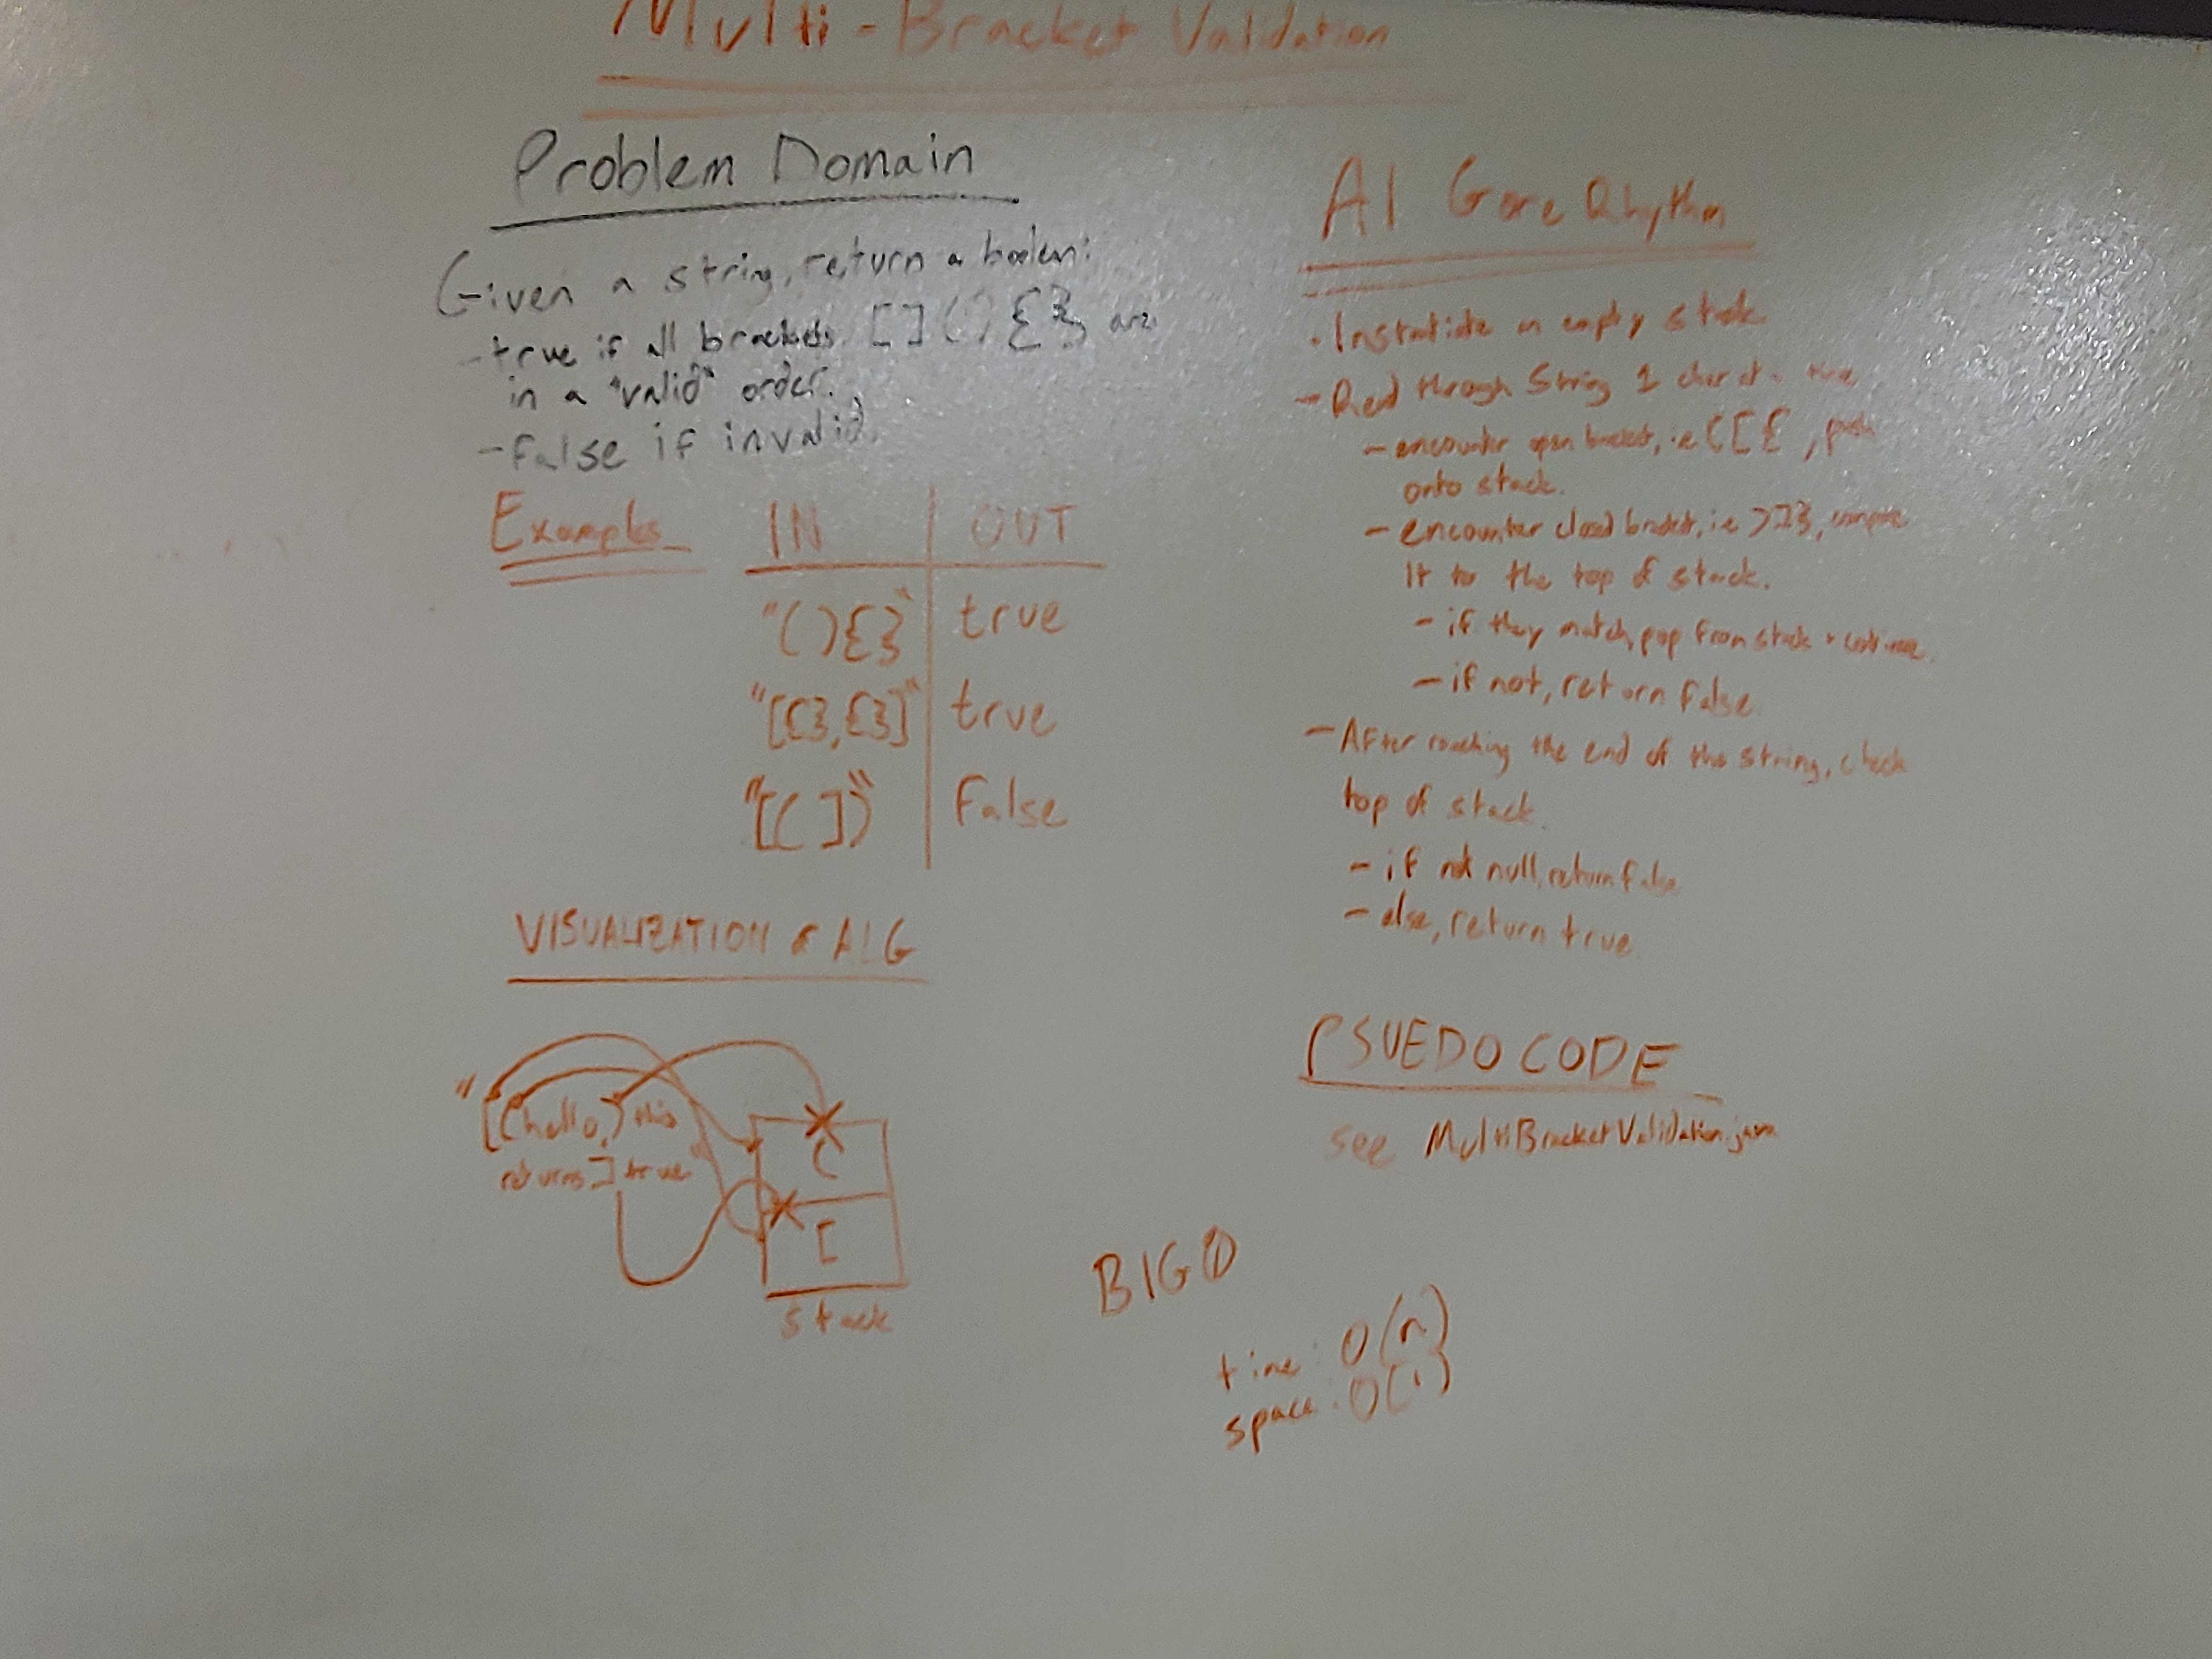 Multi-Bracket Validation
Problem Domain
Given a string, return a boolean:
- true if all brackets [ ] ( ) { } are
in a "valid" order.
- False if invalid.
Examples
IN | OUT
"(){}" | true
"[{},{}]" | true
"[(])" | False
VISUALIZATION of ALG
"[(hello,) this
returns] true"
(
[
stack
Al Gore Rhythm
- Instantiate an empty stack.
- Read through String 1 char at a time
- encounter open bracket, ie ( [ { , push
onto stack.
- encounter closed bracket, ie ) ] }, compare
it to the top of stack.
- if they match, pop from stack + continue.
- if not, return false.
- After reaching the end of the string, check
top of stack.
- if not null, return false
- else, return true
PSUEDO CODE
see MultiBracketValidation.java
BIG O
time: O(n)
space: O(1)